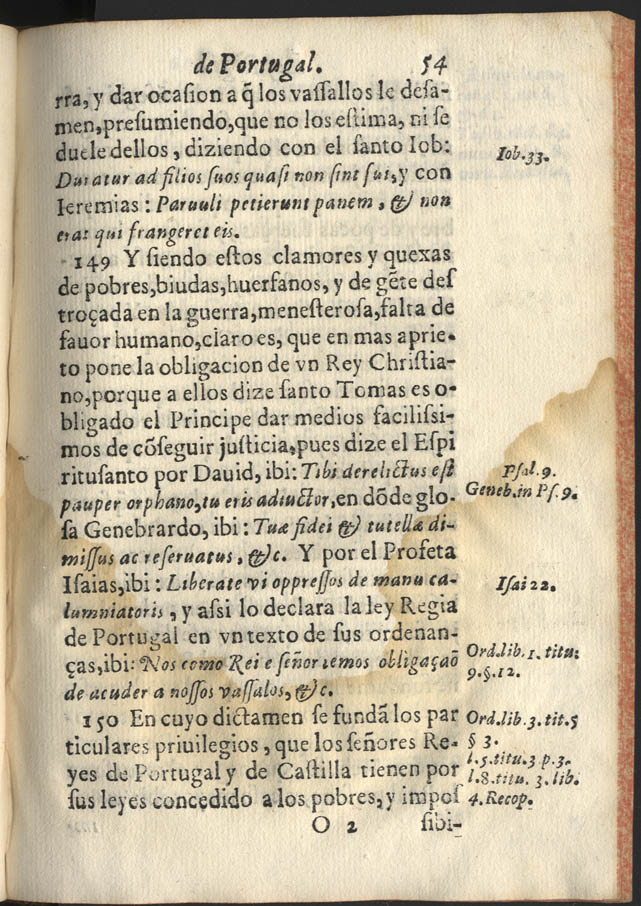 de Portugal. 54
rra, y dar ocasion a q̃ los vaſſallos le deſa-
men, preſumiendo, que no los eſtima, ni ſe
duele dellos, diziendo con el ſanto Iob:
Iob. 33.
Duratur ad filios ſuos quaſi non ſint ſui, y con
Ieremias: Paruuli petierunt panem, & non
erat qui frangeret eis.
149 Y ſiendo eſtos clamores y quexas
de pobres, biudas, huerfanos, y de gẽte deſ
troçada en la guerra, meneſteroſa, falta de
fauor humano, claro es, que en mas aprie-
to pone la obligacion de vn Rey Chriſtia-
no, porque a ellos dize ſanto Tomas es o-
bligado el Principe dar medios faciliſsi-
mos de cõſeguir juſticia, pues dize el Eſpi
rituſanto por Dauid, ibi: Tibi derelictus eſt
Pſal. 9.
pauper orphano, tu eris adiuctor, en dõde glo-
Geneb. in Pſ. 9.
ſa Genebrardo, ibi: Tuæ fidei & tutellæ di-
miſſus ac reſeruatus, &c. Y por el Profeta
Iſaias, ibi: Liberate vi oppreſſos de manu ca-
Iſai 22.
lumniatoris, y aſsi lo declara la ley Regia
de Portugal en vn texto de ſus ordenan-
ças, ibi: Nos como Rei e ſeñor temos obligaçaõ
Ord. lib. 1. titu:
9. §. 12.
de acuder a noſſos vaſſalos, &c.
150 En cuyo dictamen ſe fundã los par
Ord. lib. 3. tit. 5
ticulares priuilegios, que los ſeñores Re-
§ 3.
l. 5. titu. 3 p. 3.
yes de Portugal y de Caſtilla tienen por
l. 8. titu. 3. lib.
ſus leyes concedido a los pobres, y impoſ
4. Recop.
O 2 ſibi-